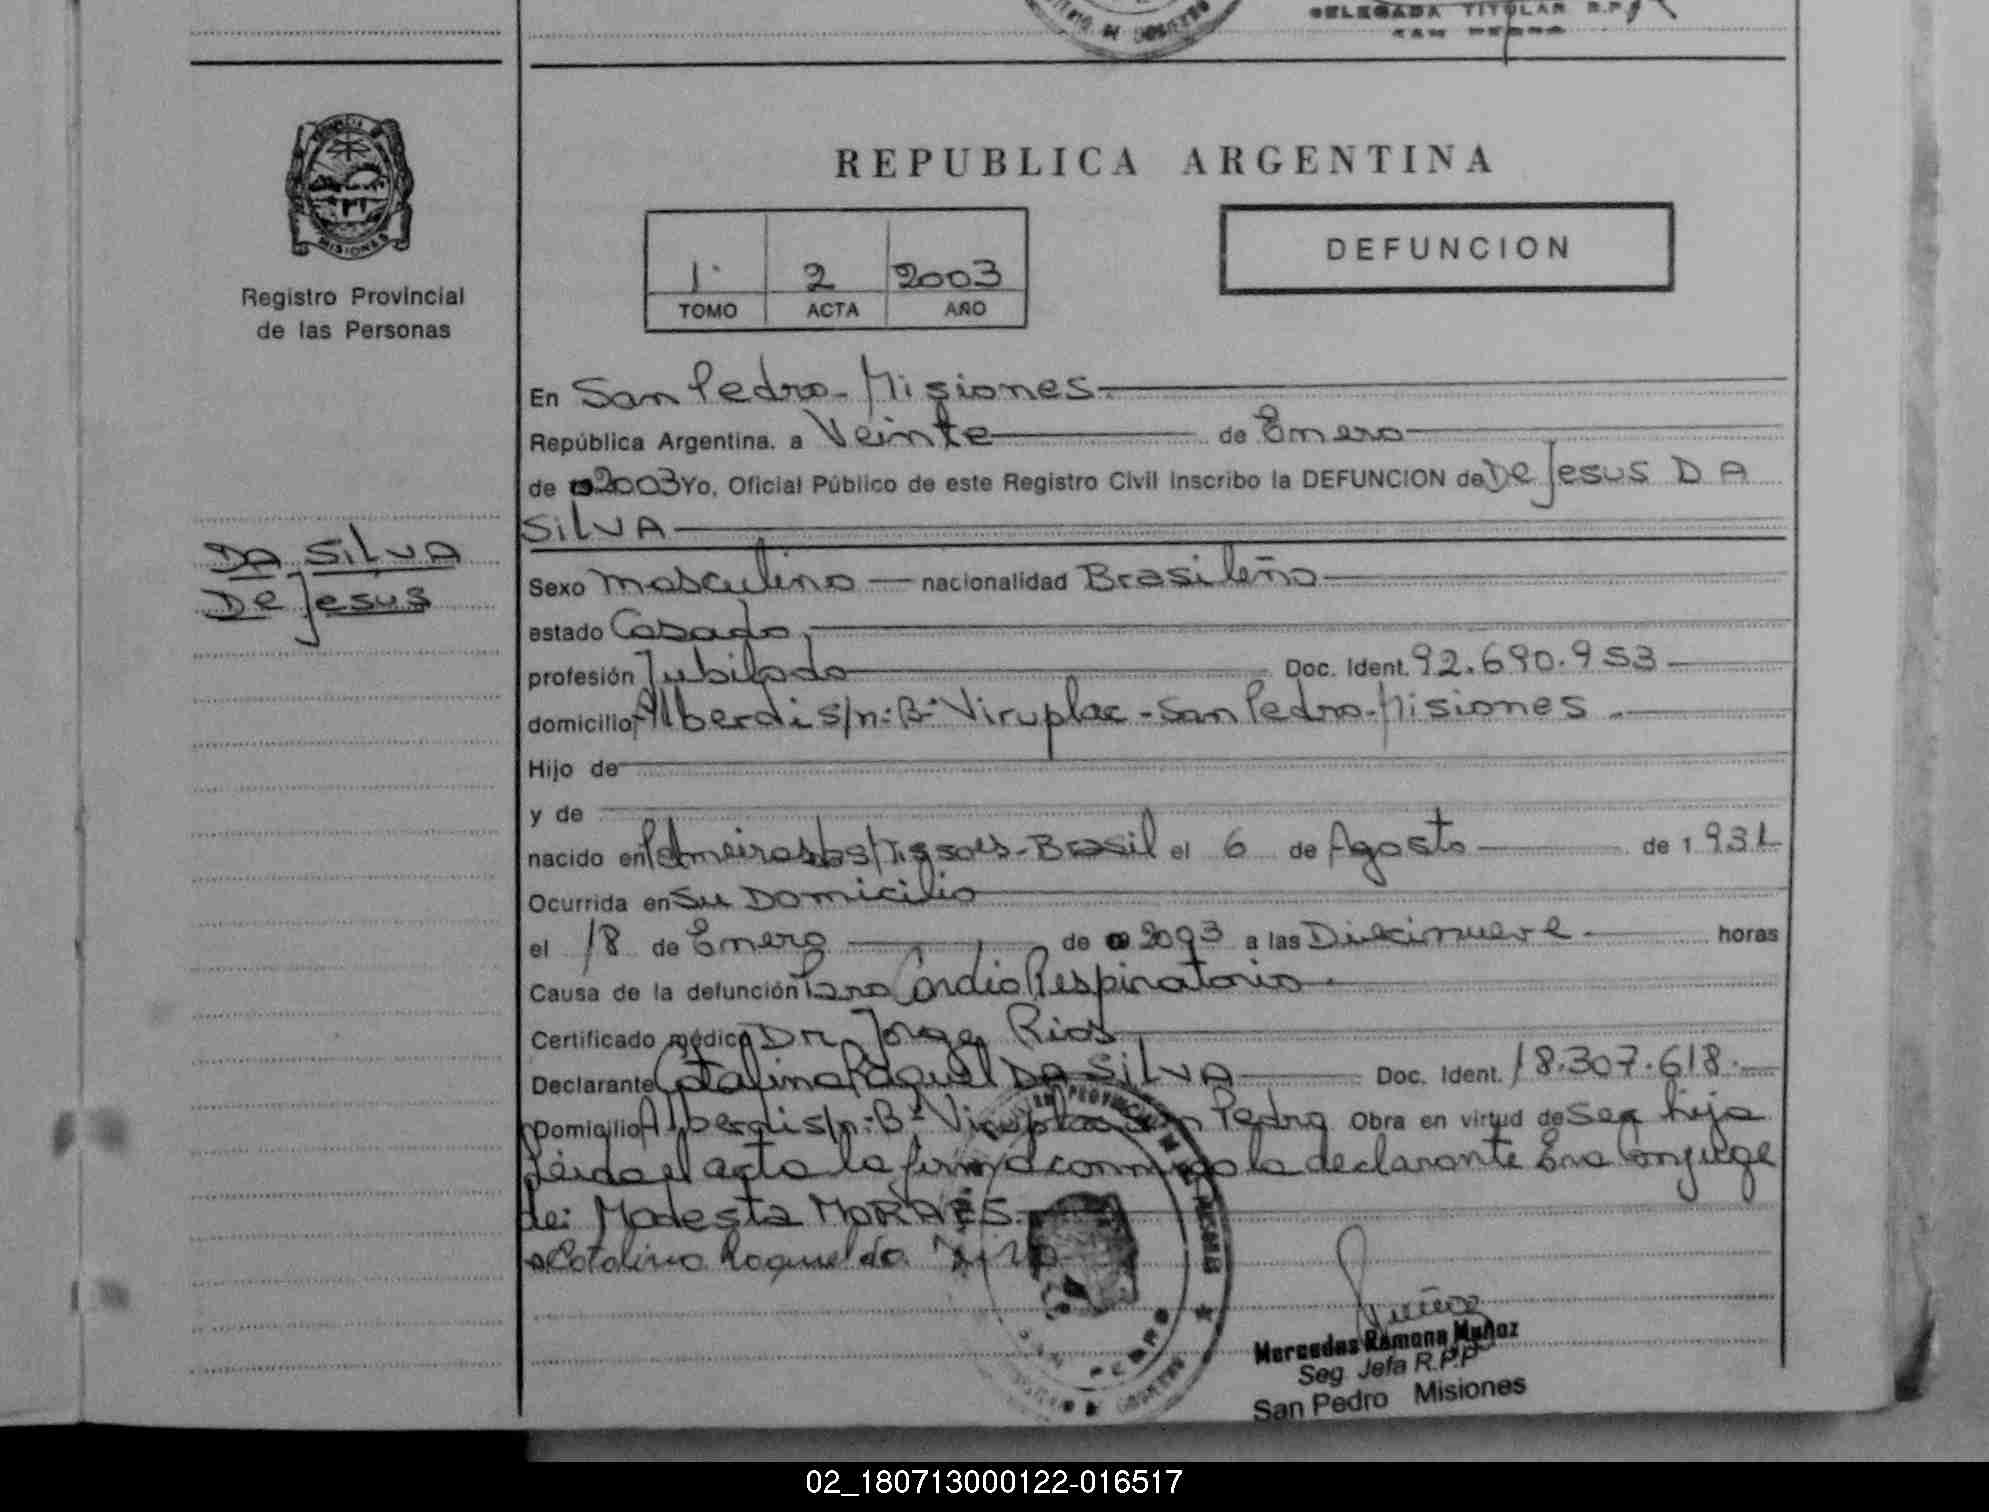 DELEGADA TITULAR R.P.P
SAN PEDRO
PROVINCIA DE
MISIONES
Registro Provincial
de las Personas
REPUBLICA ARGENTINA
1· 2 2003
TOMO ACTA AÑO
DEFUNCION
En San Pedro - Misiones.
República Argentina, a Veinte de Enero
de 2003 Yo, Oficial Público de este Registro Civil inscribo la DEFUNCION de De Jesus DA
SILVA
DA SILVA
De Jesus
Sexo masculino nacionalidad Brasileño
estado Casado,
profesión Jubilado Doc. Ident. 92.690.953
domicilio Alberdi s/n: Bº Viruplac - San Pedro - Misiones.
Hijo de
y de
nacido en Brasil el 6 de Agosto de 1.931
Ocurrida en Su Domicilio
el 18 de Enero de 2003 a las Diecinueve horas
Causa de la defunción Paro Cardio Respiratorio.
Certificado médico Dr. Jorge Rios
Declarante Catalina Raquel DA SILVA Doc. Ident. 18.307.618.
Domicilio Alberdi s/n: Bº Viruplac San Pedro Obra en virtud de Ser hija
Leida el acta la firma conmigo la declarante Era Conyuge
de: Modesta MORAES.
Catalina Raquel da Silva
SAN PEDRO
Mercedes Ramona Muñoz
Seg Jefa R.P.P
San Pedro Misiones
02_180713000122-016517